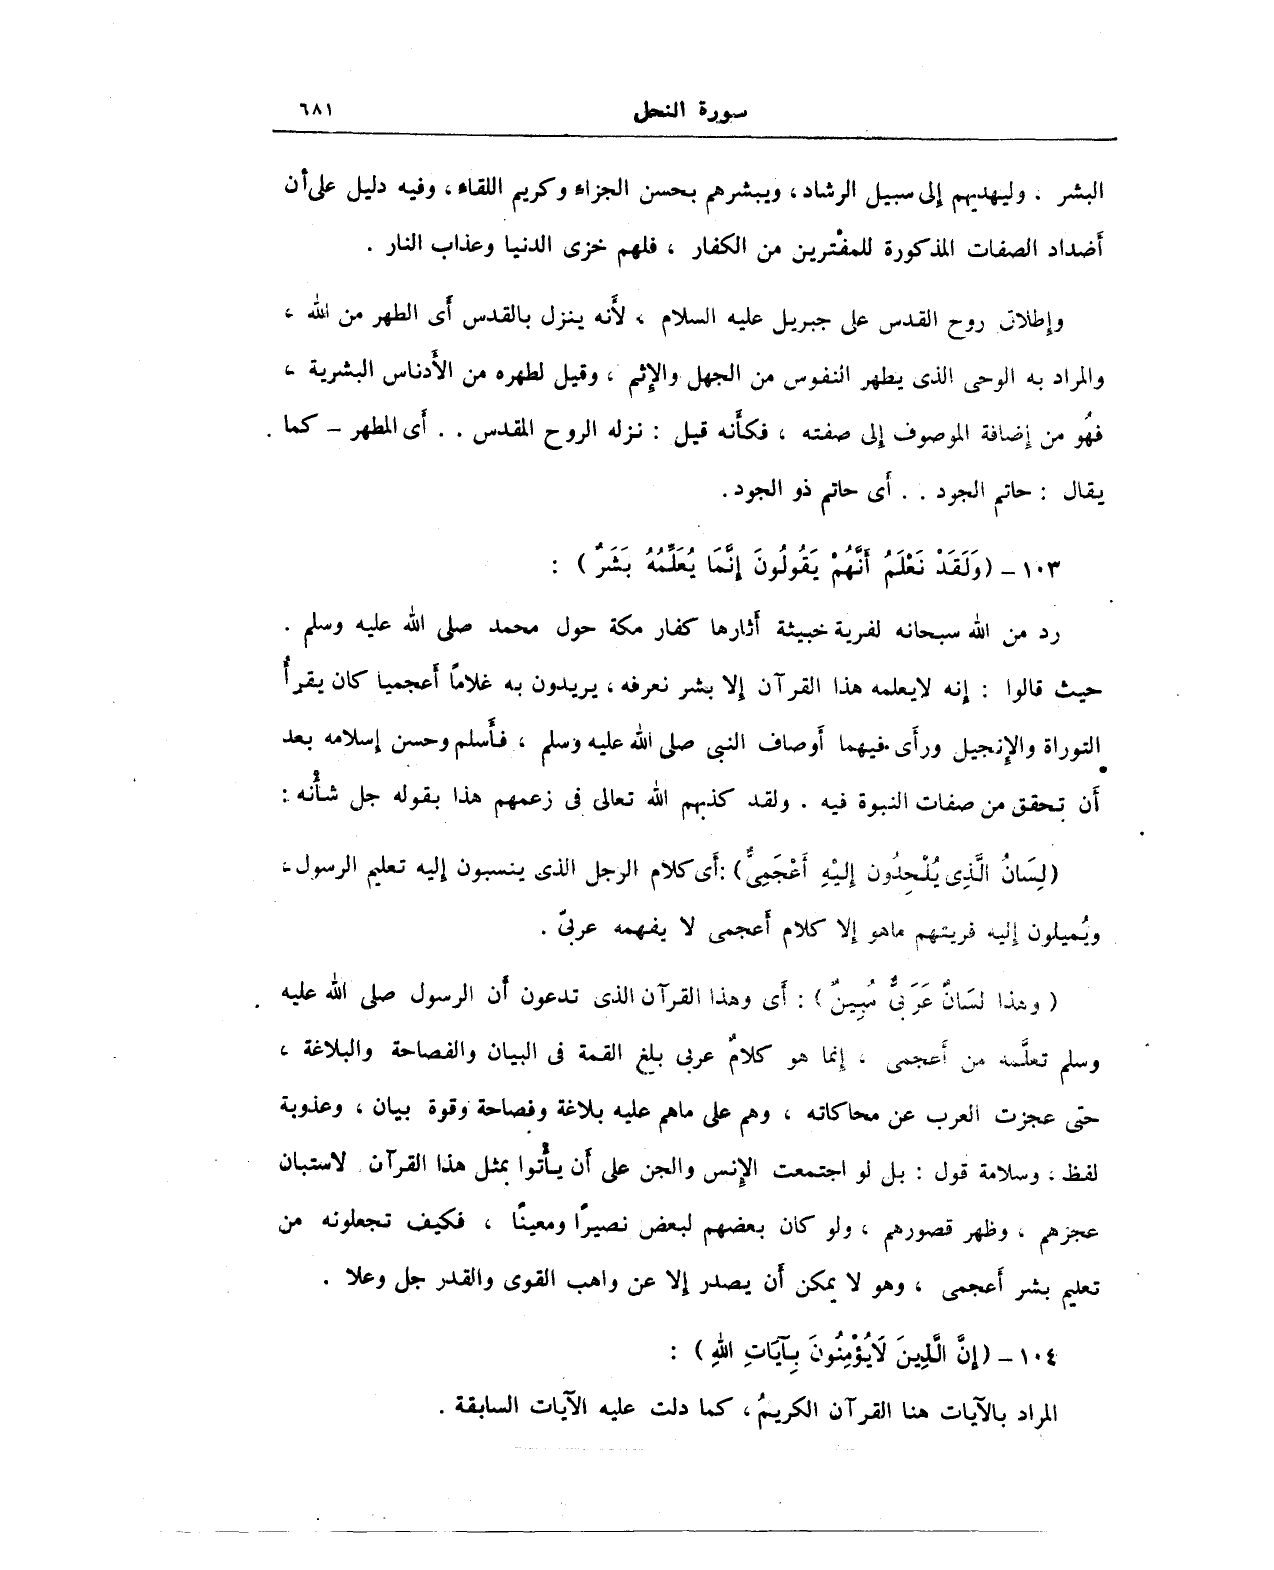 سورة النحل ٦٨١
البشر . وليهديهم إلى سبيل الرشاد، ويبشرهم بحسن الجزاء وكريم اللقاء، وفيه دليل على أن
أضداد الصفات المذكورة للمفْترين من الكفار ، فلهم خزى الدنيا وعذاب النار .
وإطلاق روح القدس على جبريل عليه السلام ، لأَنه ينزل بالقدس أَى الطهر من الله ،
والمراد به الوحى الذى يطهر النفوس من الجهل والإِثم ، وقيل لطهره من الأَدناس البشرية ،
فهُو من إضافة الموصوف إلى صفته ، فكأَنه قيل : نزله الروح المقدس . . أَى المطهر – كما
يقال : حاتم الجود . . أَى حاتم ذو الجود.
١٠٣ – (وَلَقَدْ نَعْلَمُ أَنَّهُمْ يَقُولُونَ إِنَّمَا يُعَلِّمُهُ بَشَرٌ ) :
رد من الله سبحانه لفرية خبيثة أثارها كفار مكة حول محمد صلى الله عليه وسلم .
حيث قالوا : إنه لايعلمه هذا القرآن إلا بشر نعرفه، يريدون به غلاماً أعجميا كان يقرأُ
التوراة والإنجيل ورأى فيهما أوصاف النبى صلى الله عليه وسلم ، فأَسلم وحسن إسلامه بعد
أن تحقق من صفات النبوة فيه . ولقد كذبهم الله تعالى فى زعمهم هذا بقوله جل شأْنه :
(لِسَانُ الَّذِى يُلْحِدُون إِلَيْهِ أَعْجَمِىٌّ) :أَى كلام الرجل الذى ينسبون إليه تعليم الرسول،
ويُميلون إليه فريتهم ماهو إلا كلام أَعجمى لا يفهمه عربىّ .
( وهذا لسَانٌ عَرَبىٌّ مُبِينٌ ) : أَى وهذا القرآن الذى تدعون أَن الرسول صلى الله عليه
وسلم تعلَّمه من أَعجمى ، إنما هو كلامٌ عربى بلغ القمة فى البيان والفصاحة والبلاغة ،
حتى عجزت العرب عن محاكاته ، وهم على ماهم عليه بلاغة وفصاحة وقوة بيان ، وعذوبة
لفظ ، وسلامة قول : بل لو اجتمعت الإنس والجن على أَن يأْتوا بمثل هذا القرآن لاستبان
عجزهم ، وظهر قصورهم ، ولو كان بعضهم لبعض نصيرًا ومعينًا ، فكيف تجعلونه من
تعليم بشر أَعجمى ، وهو لا يمكن أَن يصدر إلا عن واهب القوى والقدر جل وعلا .
١٠٤ – (إِنَّ الَّذِينَ لَايُؤْمِنُونَ بِآيَاتِ اللهِ ) :
المراد بالآيات هنا القرآن الكريمُ، كما دلت عليه الآيات السابقة .